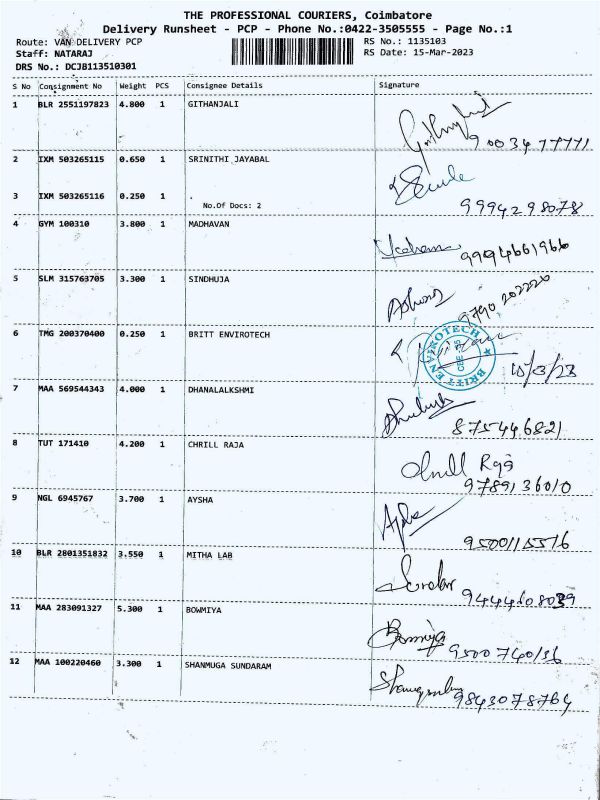 THE PROFESSIONAL COURIERS, Coimbatore
Delivery Runsheet - PCP - Phone No.:0422-3505555 - Page No.:1
Route: VAN DELIVERY PCP RS No.: 1135103
Staff: NATARAJ RS Date: 15-Mar-2023
DRS No.: DCJB113510301
S No Consignment No Weight PCS Consignee Details Signature
1 BLR 2551197823 4.800 1 GITHANJALI
9003477771
2 IXM 503265115 0.650 1 SRINITHI JAYABAL
3 IXM 503265116 0.250 1
No.Of Docs: 2 9994298078
4 GYM 100310 3.800 1 MADHAVAN
9994661966
5 SLM 315763705 3.300 1 SINDHUJA
9790202220
6 TMG 200370400 0.250 1 BRITT ENVIROTECH
BRITT ENVIROTECH
15/3/23
7 MAA 569544343 4.000 1 DHANALALKSHMI
875446821
8 TUT 171410 4.200 1 CHRILL RAJA
Raja
9789136010
9 NGL 6945767 3.700 1 AYSHA
9500115516
10 BLR 2801351832 3.550 1 MITHA LAB
9444608039
11 MAA 283091327 5.300 1 BOWMIYA
Bowmiya
9500740136
12 MAA 100220460 3.300 1 SHANMUGA SUNDARAM
9843078764